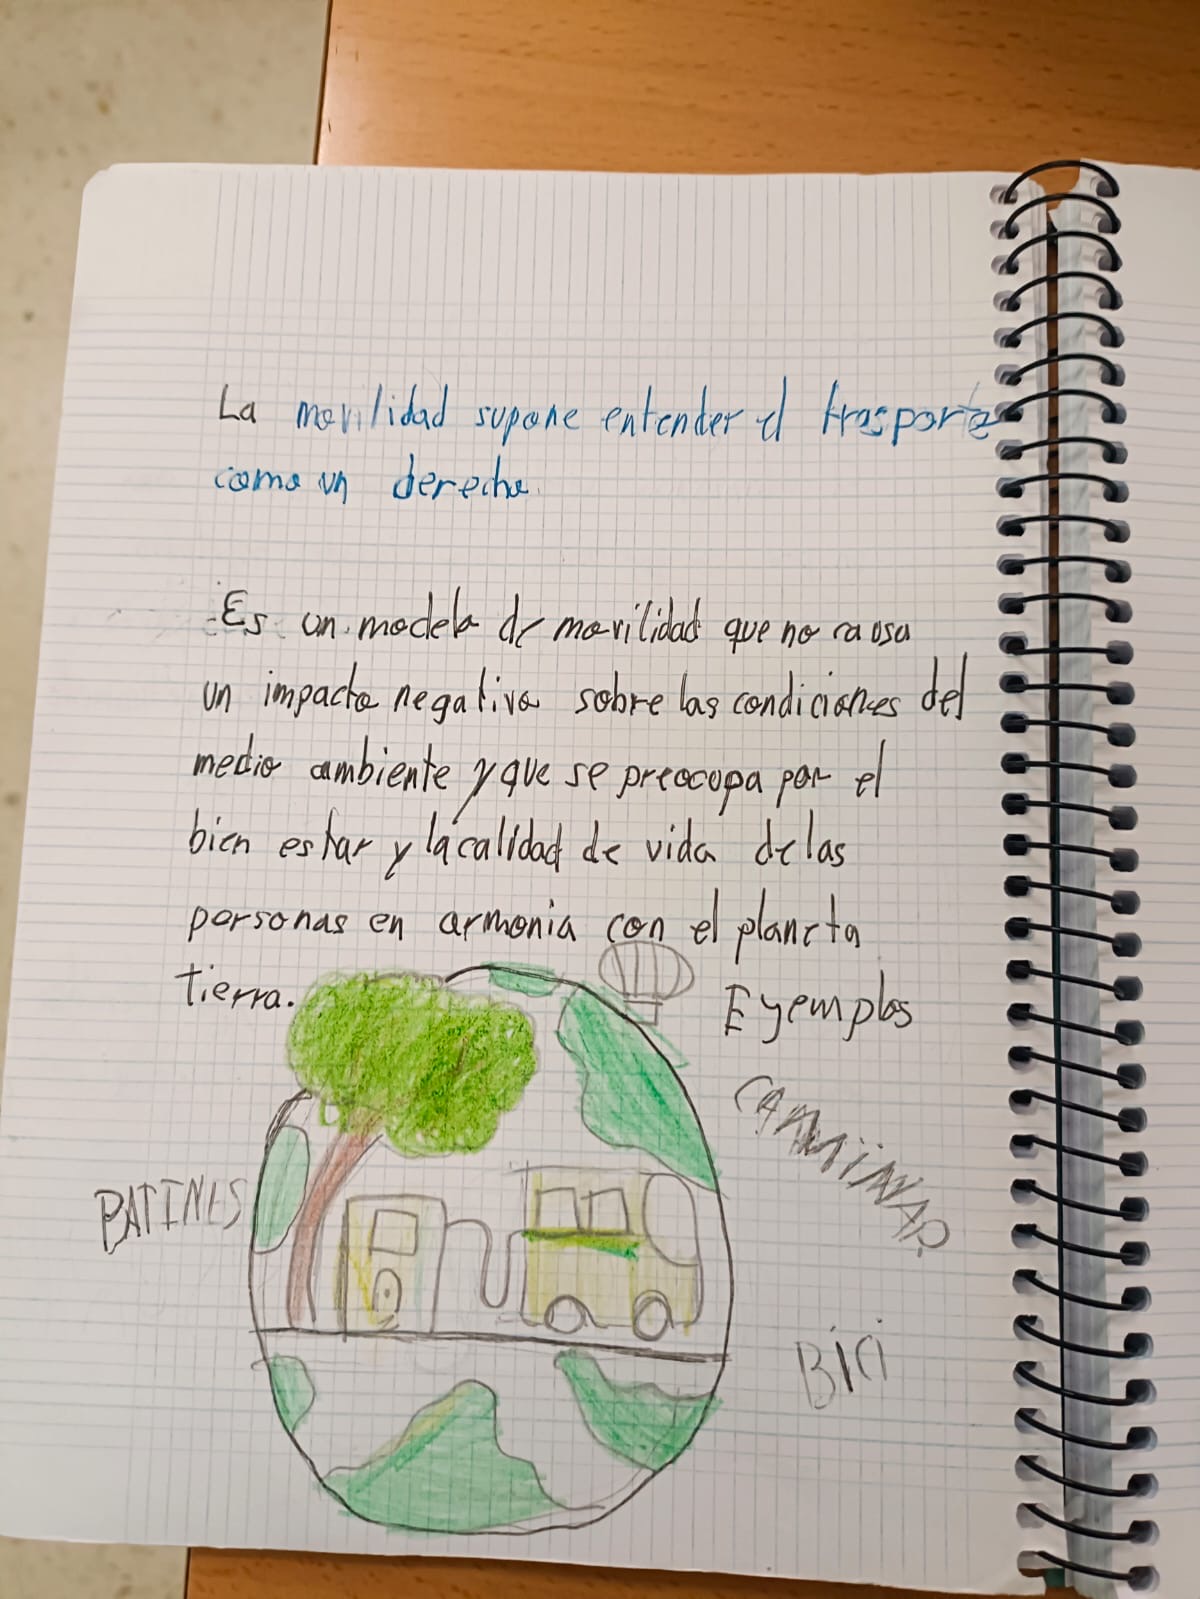 La movilidad supone entender el trasporte
como un derecho.
Es un modelo de movilidad que no causa
un impacto negativo sobre las condiciones del
medio ambiente y que se preocupa por el
bien estar y la calidad de vida de las
personas en armonia con el planeta
tierra.
Eyemplos
CAMMiNAR
PATINES
BiCi